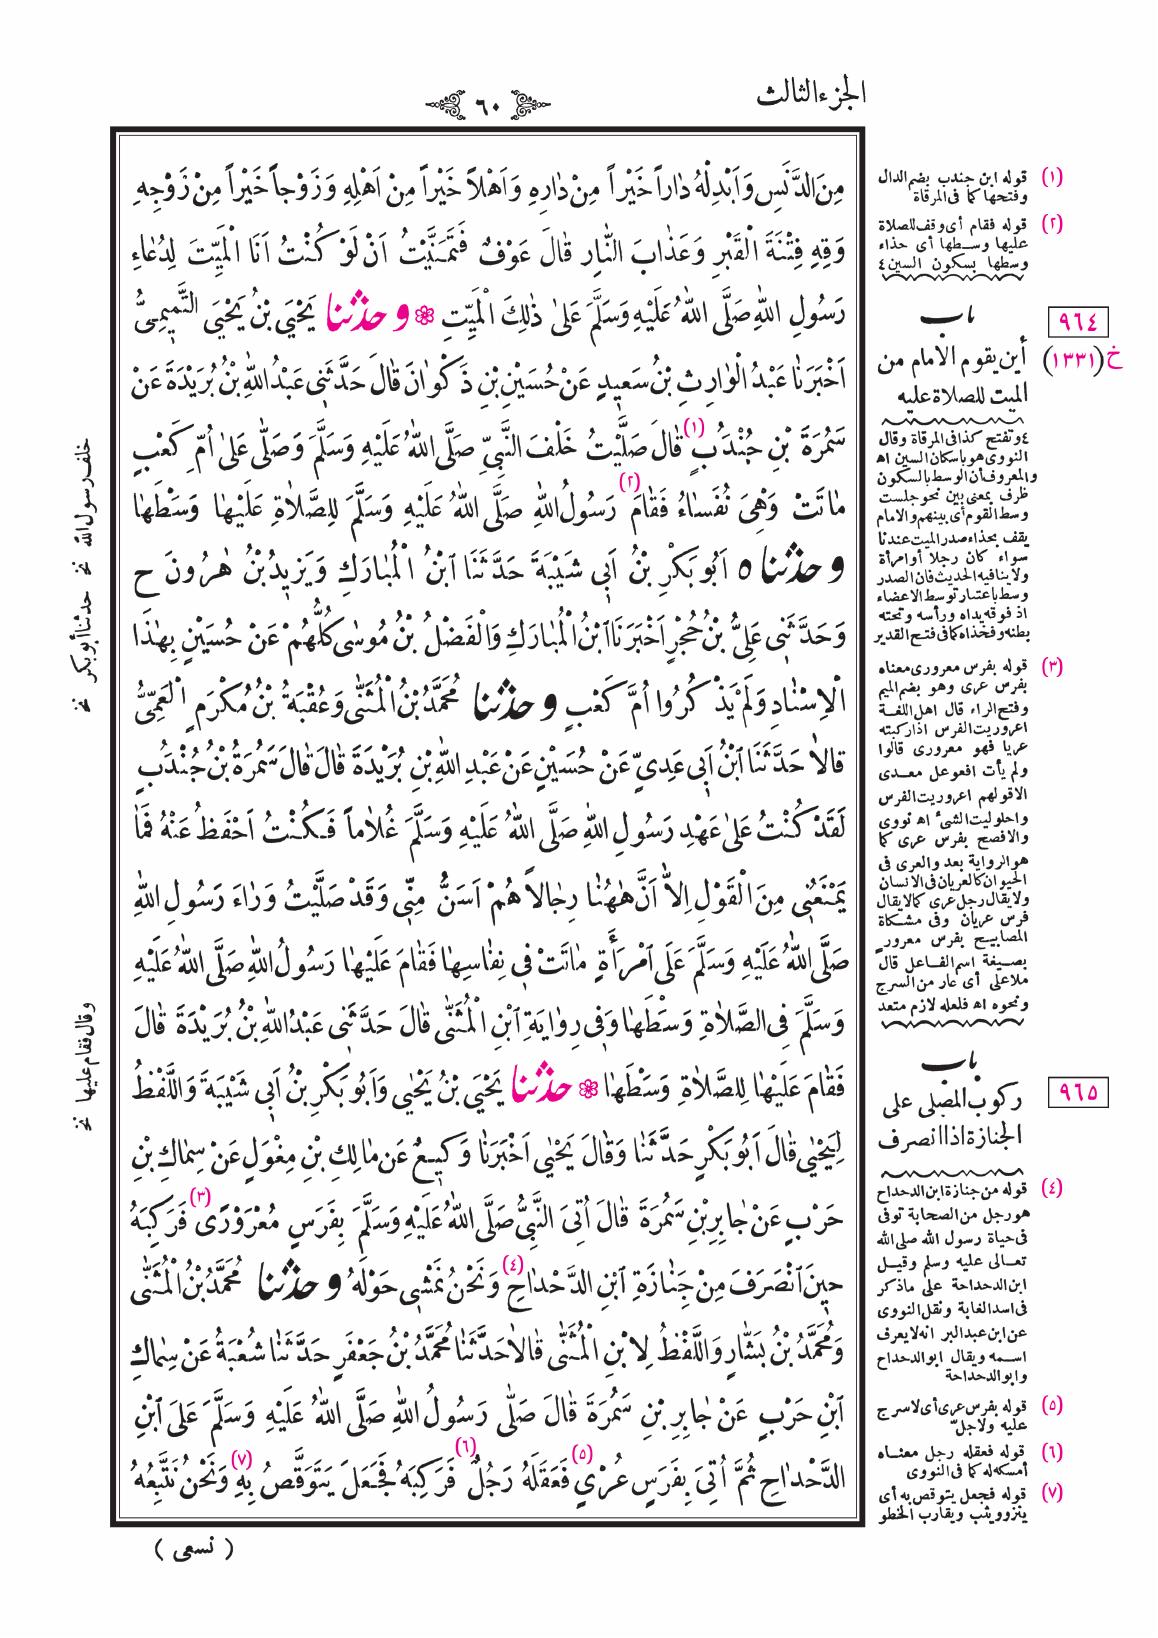 الجزء الثالث
٦٠
مِنَ الدَّنَسِ وَاَبْدِلْهُ دَاراً خَيْراً مِنْ دَارِهِ وَاَهْلاً خَيْراً مِنْ اَهْلِهِ وَزَوْجاً خَيْراً مِنْ زَوْجِهِ
وَقِهِ فِتْنَةَ الْقَبْرِ وَعَذَابَ النَّارِ قَالَ عَوْفٌ فَتَمَنَّيْتُ اَنْ لَوْ كُنْتُ اَنَا الْمَيِّتَ لِدُعَاءِ
رَسُولِ اللهِ صَلَّى اللهُ عَلَيْهِ وَسَلَّمَ عَلَى ذٰلِكَ الْمَيِّتِ ❁ و حدثنا يَحْيَى بْنُ يَحْيَى التَّمِيمِىُّ
اَخْبَرَنَا عَبْدُ الْوَارِثِ بْنُ سَعِيدٍ عَنْ حُسَيْنِ بْنِ ذَكْوَانَ قَالَ حَدَّثَنِى عَبْدُ اللهِ بْنُ بُرَيْدَةَ عَنْ
سَمُرَةَ بْنِ جُنْدَبٍ (١) قَالَ صَلَّيْتُ خَلْفَ النَّبِىِّ صَلَّى اللهُ عَلَيْهِ وَسَلَّمَ وَصَلَّى عَلَى اُمِّ كَعْبٍ
مَاتَتْ وَهِىَ نُفَسَاءُ فَقَامَ (٢) رَسُولُ اللهِ صَلَّى اللهُ عَلَيْهِ وَسَلَّمَ لِلصَّلَاةِ عَلَيْهَا وَسْطَهَا
و حدثنا ٥ اَبُو بَكْرِ بْنُ اَبِى شَيْبَةَ حَدَّثَنَا ابْنُ الْمُبَارَكِ وَيَزِيدُ بْنُ هٰرُونَ ح
وَحَدَّثَنِى عَلِىُّ بْنُ حُجْرٍ اَخْبَرَنَا ابْنُ الْمُبَارَكِ وَالْفَضْلُ بْنُ مُوسَى كُلُّهُمْ عَنْ حُسَيْنٍ بِهٰذَا
الْاِسْنَادِ وَلَمْ يَذْكُرُوا اُمَّ كَعْبٍ و حدثنا مُحَمَّدُ بْنُ الْمُثَنَّى وَعُقْبَةُ بْنُ مُكْرَمٍ الْعَمِّىُّ
قَالَا حَدَّثَنَا ابْنُ اَبِى عَدِىٍّ عَنْ حُسَيْنٍ عَنْ عَبْدِ اللهِ بْنِ بُرَيْدَةَ قَالَ قَالَ سَمُرَةُ بْنُ جُنْدَبٍ
لَقَدْ كُنْتُ عَلَى عَهْدِ رَسُولِ اللهِ صَلَّى اللهُ عَلَيْهِ وَسَلَّمَ غُلَاماً فَكُنْتُ اَحْفَظُ عَنْهُ فَمَا
يَمْنَعُنِى مِنَ الْقَوْلِ اِلَّا اَنَّ هٰهُنَا رِجَالاً هُمْ اَسَنُّ مِنِّى وَقَدْ صَلَّيْتُ وَرَاءَ رَسُولِ اللهِ
صَلَّى اللهُ عَلَيْهِ وَسَلَّمَ عَلَى امْرَأَةٍ مَاتَتْ فِى نِفَاسِهَا فَقَامَ عَلَيْهَا رَسُولُ اللهِ صَلَّى اللهُ عَلَيْهِ
وَسَلَّمَ فِى الصَّلَاةِ وَسْطَهَا وَفِى رِوَايَةِ ابْنِ الْمُثَنَّى قَالَ حَدَّثَنِى عَبْدُ اللهِ بْنُ بُرَيْدَةَ قَالَ
فَقَامَ عَلَيْهَا لِلصَّلَاةِ وَسْطَهَا ❁ حدثنا يَحْيَى بْنُ يَحْيَى وَاَبُو بَكْرِ بْنُ اَبِى شَيْبَةَ وَاللَّفْظُ
لِيَحْيَى قَالَ اَبُو بَكْرٍ حَدَّثَنَا وَقَالَ يَحْيَى اَخْبَرَنَا وَكِيعٌ عَنْ مَالِكِ بْنِ مِغْوَلٍ عَنْ سِمَاكِ بْنِ
حَرْبٍ عَنْ جَابِرِ بْنِ سَمُرَةَ قَالَ اُتِىَ النَّبِىُّ صَلَّى اللهُ عَلَيْهِ وَسَلَّمَ بِفَرَسٍ مُعْرَوْرًى (٣) فَرَكِبَهُ
حِينَ انْصَرَفَ مِنْ جَنَازَةِ ابْنِ الدَّحْدَاحِ (٤) وَنَحْنُ نَمْشِى حَوْلَهُ و حدثنا مُحَمَّدُ بْنُ الْمُثَنَّى
وَمُحَمَّدُ بْنُ بَشَّارٍ وَاللَّفْظُ لِابْنِ الْمُثَنَّى قَالَا حَدَّثَنَا مُحَمَّدُ بْنُ جَعْفَرٍ حَدَّثَنَا شُعْبَةُ عَنْ سِمَاكِ
ابْنِ حَرْبٍ عَنْ جَابِرِ بْنِ سَمُرَةَ قَالَ صَلَّى رَسُولُ اللهِ صَلَّى اللهُ عَلَيْهِ وَسَلَّمَ عَلَى ابْنِ
الدَّحْدَاحِ ثُمَّ اُتِىَ بِفَرَسٍ عُرْىٍ (٥) فَعَقَلَهُ رَجُلٌ (٦) فَرَكِبَهُ فَجَعَلَ يَتَوَقَّصُ بِهِ (٧) وَنَحْنُ نَتَّبِعُهُ
( نسعى )
(١) قوله ابن جندب بضم الدال
وفتحها كما فى المرقاة
(٢) قوله فقام أى وقف للصلاة
عليها وسطها أى حذاء
وسطها بسكون السين ٤
٩٦٤
باب
خ (١٣٣١)
أين يقوم الامام من
الميت للصلاة عليه
٤ وتفتح كذا فى المرقاة وقال
النووى هو باسكان السين اه
والمعروف أن الوسط بالسكون
ظرف بمعنى بين نحو جلست
وسط القوم أى بينهم والامام
يقف بحذاء صدر الميت عندنا
سواء كان رجلا أو امرأة
ولا ينافيه الحديث فان الصدر
وسط باعتبار توسط الاعضاء
اذ فوقه يداه ورأسه وتحته
بطنه وفخذاه كما فى فتح القدير
(٣) قوله بفرس معرورى معناه
بفرس عرى وهو بضم الميم
وفتح الراء قال اهل اللغة
اعروريت الفرس اذا ركبته
عريا فهو معرورى قالوا
ولم يأت افعوعل معدى
الا قولهم اعروريت الفرس
واحلوليت الشئ اه نووى
والافصح بفرس عرى كما
هو الرواية بعد والعرى فى
الحيوان كالعريان فى الانسان
ولا يقال رجل عرى كما لا يقال
فرس عريان وفى مشكاة
المصابيح بفرس معرور
بصيغة اسم الفاعل قال
ملا على أى عار من السرج
ونحوه اه فلعله لازم متعد
باب
٩٦٥
ركوب المصلى على
الجنازة اذا انصرف
(٤) قوله من جنازة ابن الدحداح
هو رجل من الصحابة توفى
فى حياة رسول الله صلى الله
تعالى عليه وسلم وقيل
ابن الدحداحة على ما ذكر
فى اسد الغابة ونقل النووى
عن ابن عبد البر انه لا يعرف
اسمه ويقال ابو الدحداح
وابو الدحداحة
(٥) قوله بفرس عرى أى لا سرج
عليه ولا جلّ
(٦) قوله فعقله رجل معناه
أمسكه له كما فى النووى
(٧) قوله فجعل يتوقص به أى
ينزو ويثب ويقارب الخطو
خلف رسول الله نخ
حدثنا أبو بكر نخ
وقال فقام عليها نخ